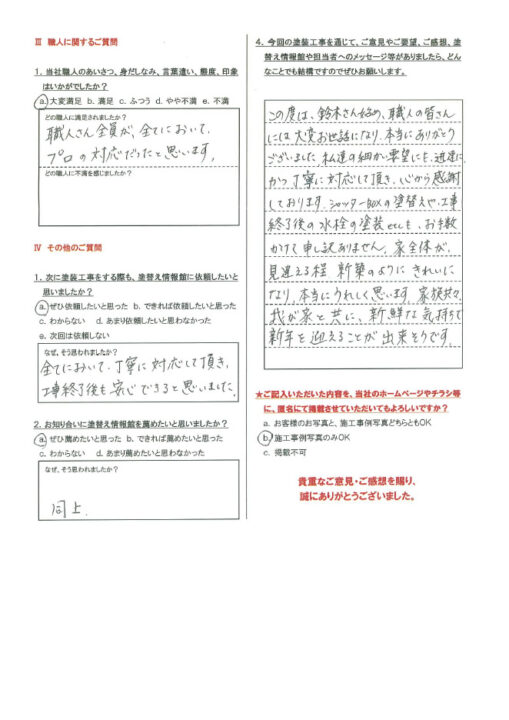 Ⅲ 職人に関するご質問
1. 当社職人のあいさつ、身だしなみ、言葉遣い、態度、印象
はいかがでしたか？
a.大変満足 b. 満足 c. ふつう d. やや不満 e. 不満
どの職人に満足されましたか？
職人さん全員が、全てにおいて、
プロの対応だったと思います。
どの職人に不満を感じましたか？
Ⅳ その他のご質問
1. 次に塗装工事をする際も、塗替え情報館に依頼したいと
思いましたか？
a.ぜひ依頼したいと思った b. できれば依頼したいと思った
c. わからない d. あまり依頼したいと思わなかった
e. 次回は依頼しない
なぜ、そう思われましたか？
全てにおいて、丁寧に対応して頂き、
工事終了後も安心できると思いました。
2. お知り合いに塗替え情報館を薦めたいと思いましたか？
a.ぜひ薦めたいと思った b. できれば薦めたいと思った
c. わからない d. あまり薦めたいと思わなかった
なぜ、そう思われましたか？
同上.
4. 今回の塗装工事を通じて、ご意見やご要望、ご感想、塗
替え情報館や担当者へのメッセージ等がありましたら、どん
なことでも結構ですのでぜひお願いします。
この度は、鈴木さん始め、職人の皆さん
には大変お世話になり、本当にありがとう
ございました。私達の細か要望にも、迅速に
かつ丁寧に対応して頂き、心から感謝
しております。シャッターBOXの塗替えや、工事
終了後の水栓の塗装etcも、お手数
かけて申し訳ありません。家全体が、
見違える程 新築のように きれいに
なり、本当にうれしく思います。家族共々、
我が家と共に、新鮮な気持ちで
新年を迎えることが出来そうです。
★ご記入いただいた内容を、当社のホームページやチラシ等
に、匿名にて掲載させていただいてもよろしいですか？
a. お客様のお写真と、施工事例写真どちらともOK
b.施工事例写真のみOK
c. 掲載不可
貴重なご意見・ご感想を賜り、
誠にありがとうございました。